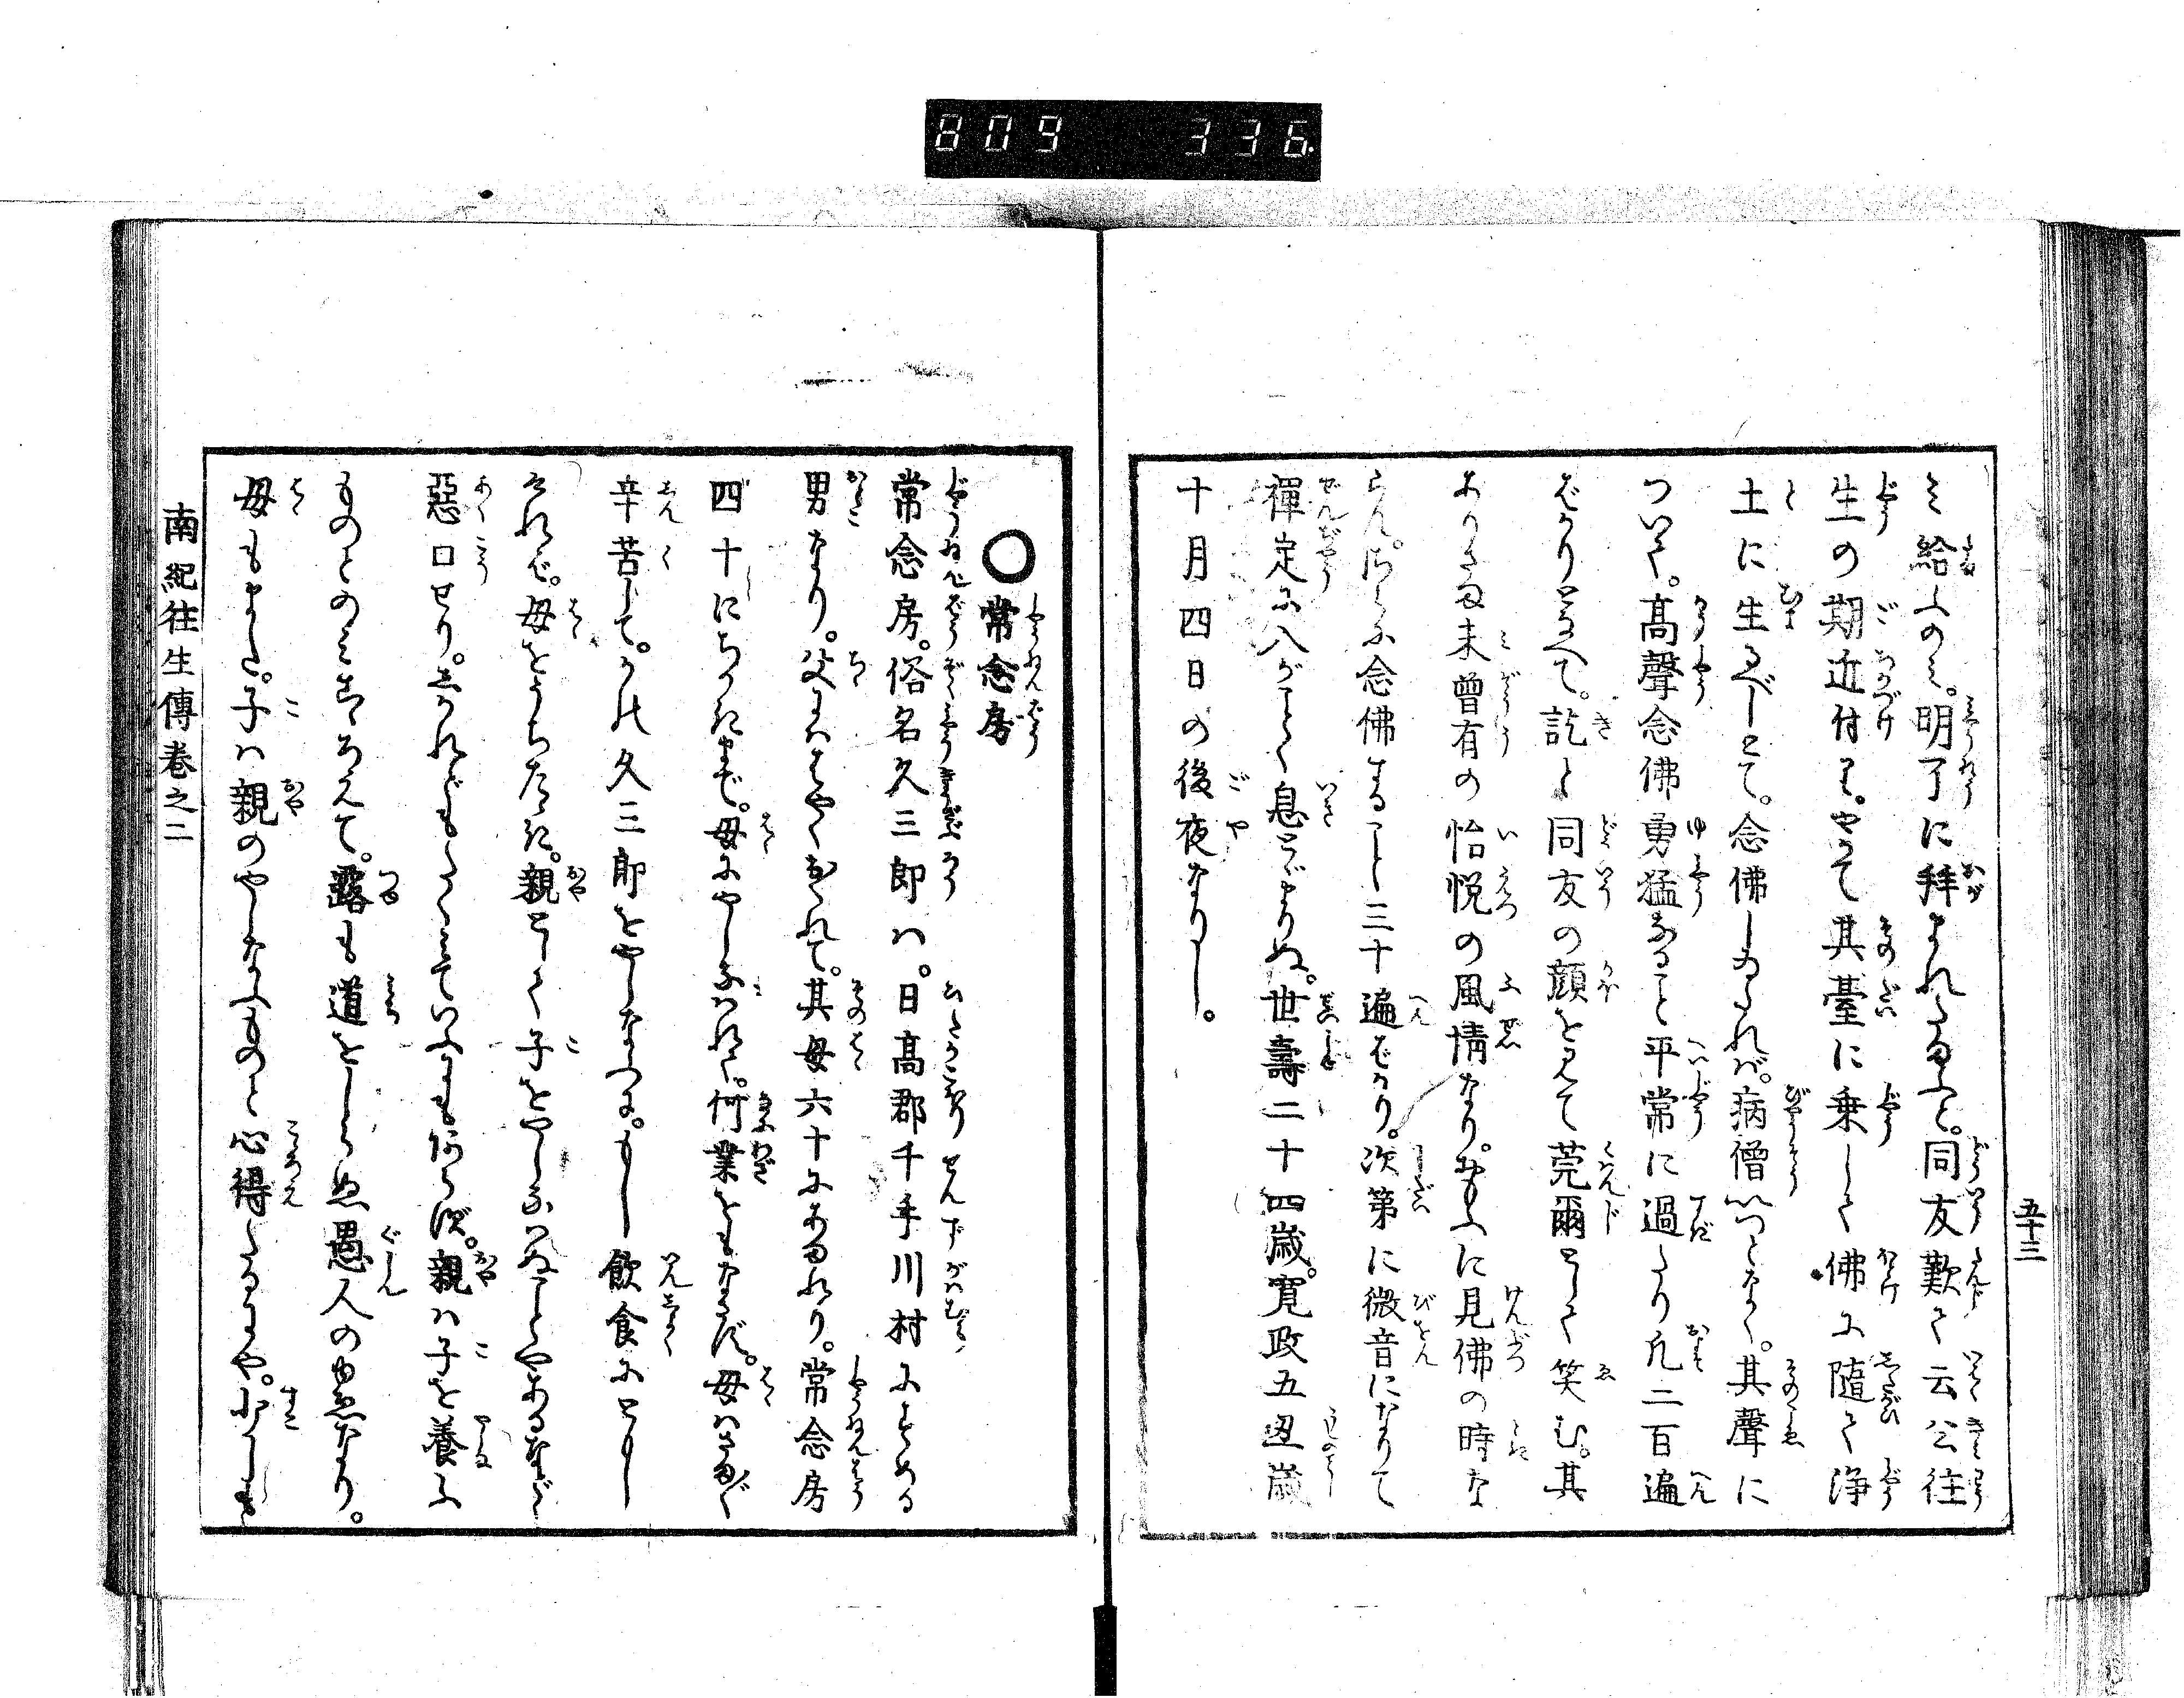 809 336
五十三
み給ふのミ。明了に拝まれたまふと。同友歎て云公往
生の期近付り。やがて其臺に乗して佛に随て浄
土に生るべしとて。念佛しゐたれバ。病僧いつとなく。其聲に
ついて。高聲念佛勇猛なること平常に過たり凡二百遍
ばかりとなへて。訖と同友の顔を見て莞爾として笑む。其
ありさま未曾有の怡悦の風情なり。おもふに見佛の時な
らん。しづかに念佛すること三十遍ばかり。次第に微音になりて
禪定に入がごとく息とゞまりぬ。世壽二十四歳。寛政五丑歳
十月四日の後夜なりし。
〇常念房
常念房。俗名久三郎ハ。日高郡千手川村にすめる
男なり。父にハはやくおくれて。其母六十にあまれり。常念房
四十にちかきまで。母にやしなはれて。何業をもなさず。母ハさまざま
辛苦して。かの久三郎をやしなふに。もし飲食にともし
けれバ。母をうちたゝき。親として子をやしなはぬことやあるなど
惡口せり。しかれどもたくミていふにもあらず。親ハ子を養ふ
ものとのミおもひて。露も道をしらぬ愚人のゆゑなり。
母もまた。子ハ親のやしなふものと心得たるにや。少しも
南紀往生傳巻之二